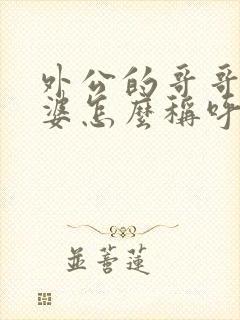 外公的哥哥
婆怎麼稱呼
並蓄蓮